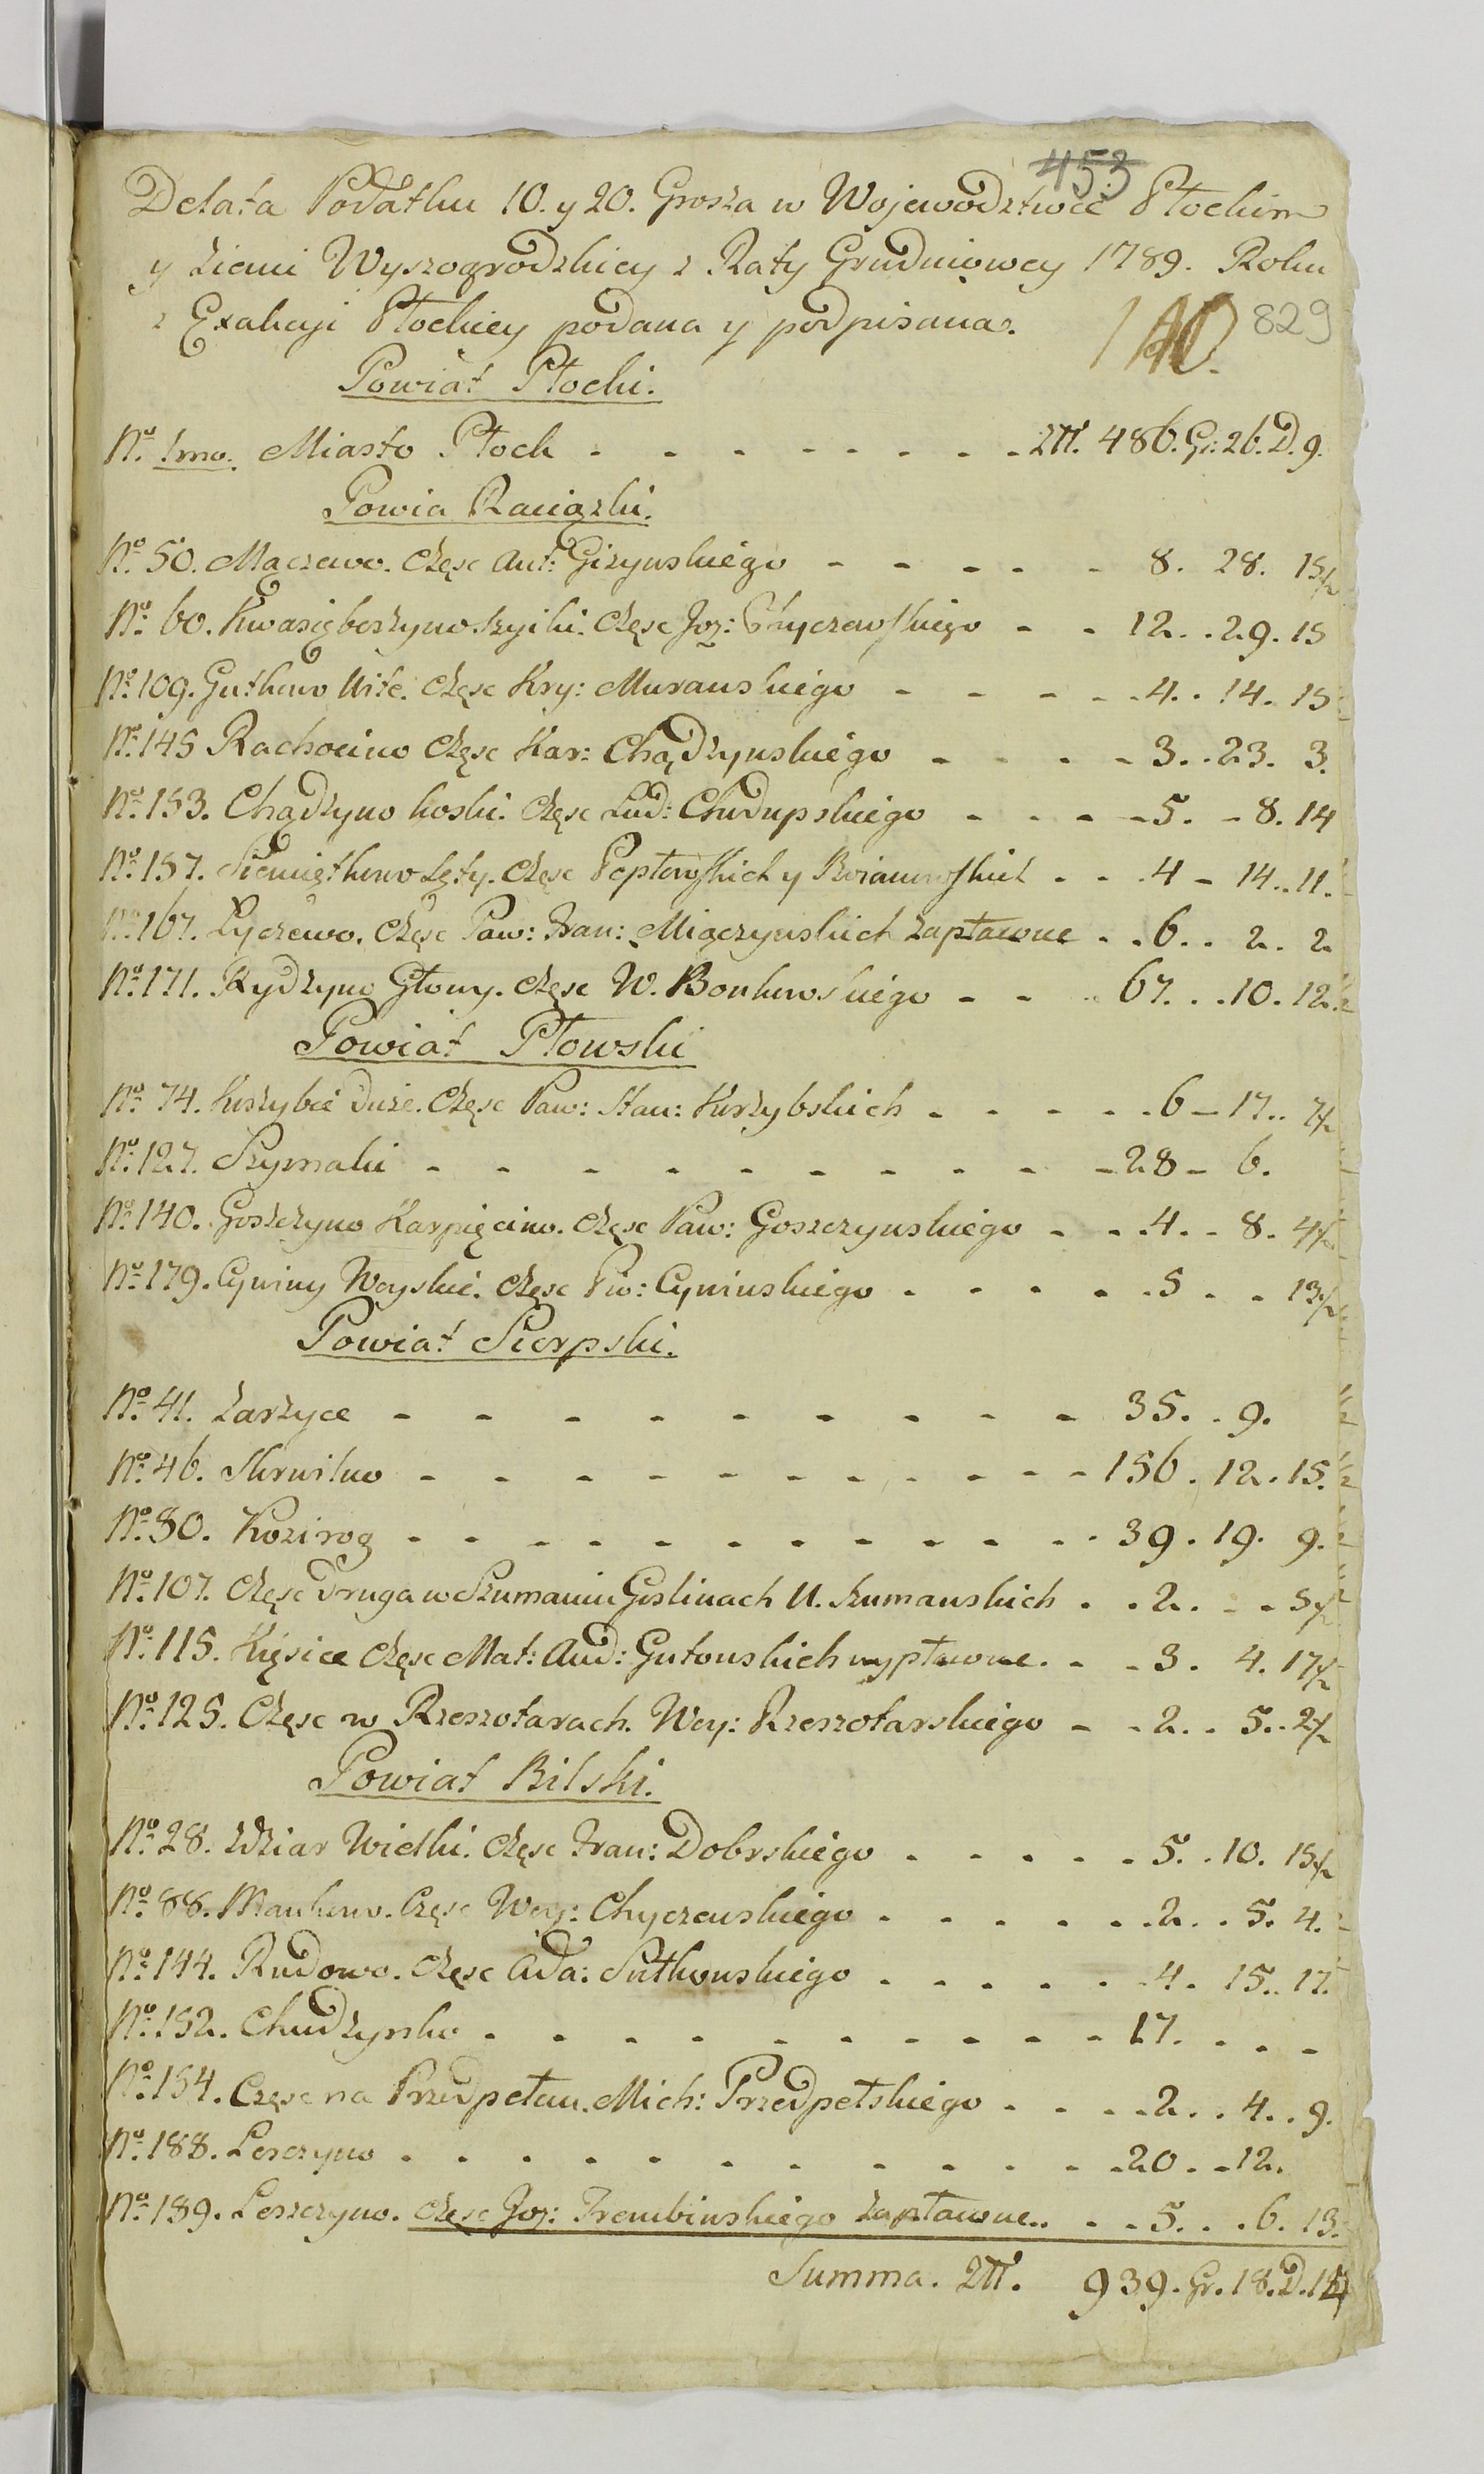 453
Delata Podatku 10. y 20. Grosza w Wojewodztwie Płockim
y Ziemi Wyszogrodzkiey z Raty Grudniowey 1789. Roku
z Exakcyi Płockiey podana y podpisana.
140. 829
Powiat Płocki.
No. 1mo. Miasto Płock - - - - - - - - Złł. 486. Gr: 26. D. 9.
Powia Raciązki.
No. 50. Mączewo. Częsc Ant: Giżynskiego - - - - - 8. 28. 15/2
No. 60. Kwasięborzyno. Częsc Joz: - - 12. . 29. 15
No. 109. Gutkowo Częsc Kry: Muranskiego - - - - - 4. . 14. 15
No. 145 Rachocino Częsc Kar: Chądzynskiego - - - - 3. . 23. 3.
No. 153. Chądzyno koski. Częsc Lud: Chudupskiego - - - - 5. - 8. 14
No. 157. Siemiątkowo Łęty. Częsc y - - . 4 - 14. . 11.
No. 167. Łyczewo. Częsc Paw: Fran: Miączynskich zapłacone - . 6. . 2. 2
No. 171. Rydzyno Głowy. Częsc W. Bonkowskiego - - . 67. . . 10. 12/2
Powiat Płowski
No. 74. Kuszybie Duże. Częsc Paw: Stan: Kurzybskich - - - - . 6 - 17. . 7/2
No. 127. Szymaki - - - - - - - - - - 28 - 6.
No. 140. Goszczyno Karpięcino. Częsc Paw: Goszczynskiego - - . 4. - 8. 4/2
No. 179. Cywiny Woyskie. Częsc Pio: Cywinskiego - - - - . 5 - - 13/2
Powiat Sierpski.
No. 41. Zarzyce - - - - - - - - - 35. . 9.
No. 46. Skrwilno - - - - - - - - - - 156. 12. 15.
No. 80. Kozirog - - - - - - - - - - 39. 19. 9.
No. 107. Częsc druga w Szumaniu Goslinach U. Szumanskich - . 2. - - 5/2
No. 115. Kęsice Częsc Mat: And: Gutowskich wypłacone. - - 3. 4. 17/2
No. 125. Częsc w Rzeszotarach. Woy: Rzeszotarskiego - - 2. . 5. . 2/2
Powiat Bilski.
No. 28. Zdziar Wielki. Częsc Fran: Dobrskiego - - - - - 5. . 10. 15/2
No. 88. Mankowo. Częsc Woy: Chyczewskiego - - - - - . 2. . 5. 4.
No. 144. Rudowo. Częsc Ada: Sutkowskiego - - - - - . 4. 15. . 17.
No. 152. Chudzynko - - - - - - - - - 17. - - -
No. 154. Częsc na Przedpełcu. Mich: Przedpełskiego - - - . 2. . 4. . 9.
No. 188. Lesczyno - - - - - - - - - - . 20. - 12.
No. 189. Leszczyno. Częsc Joz: Trembinskiego zapłacone. . - - 5. . . 6. 13.
Summa. Złł. 939. Gr. 18. D.